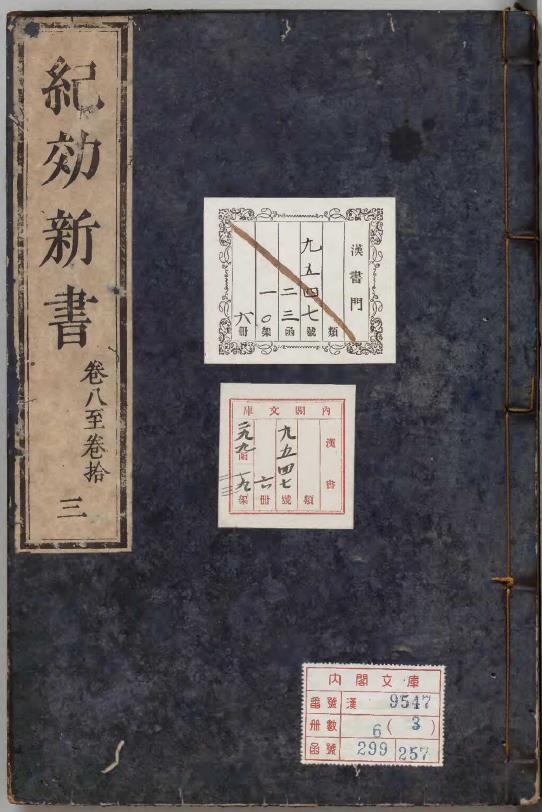 紀効新書
卷八至卷拾
三
漢書門
類
九五四七號
二三函
一〇架
六冊
內閣文庫
漢書
類
九五四七號
六冊
函
九架
內閣文庫
番號 漢 9547
冊數 6(3)
函號 299 257